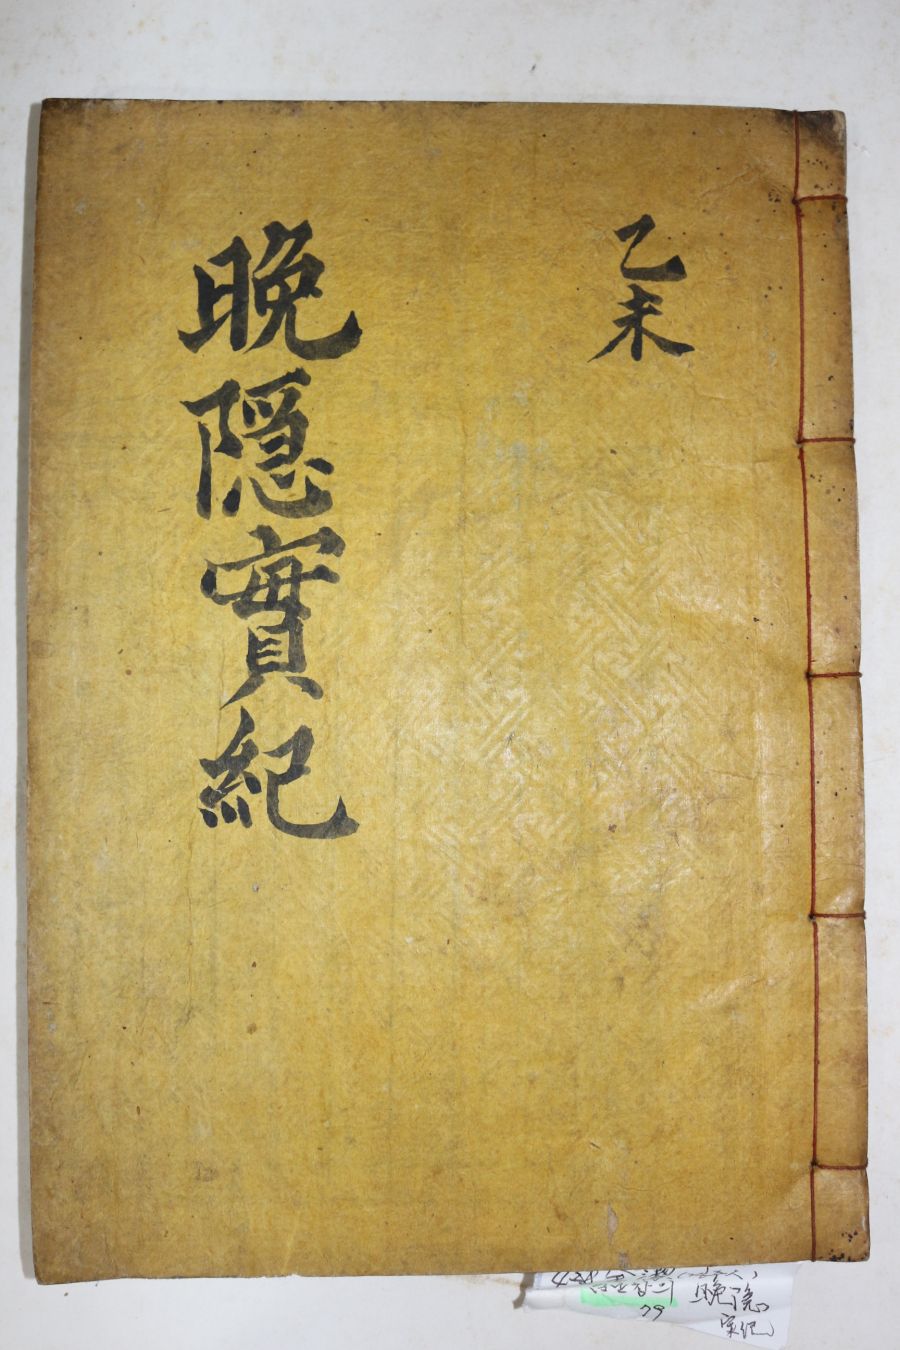 乙未
晚隱實紀
晚隱
實紀
79